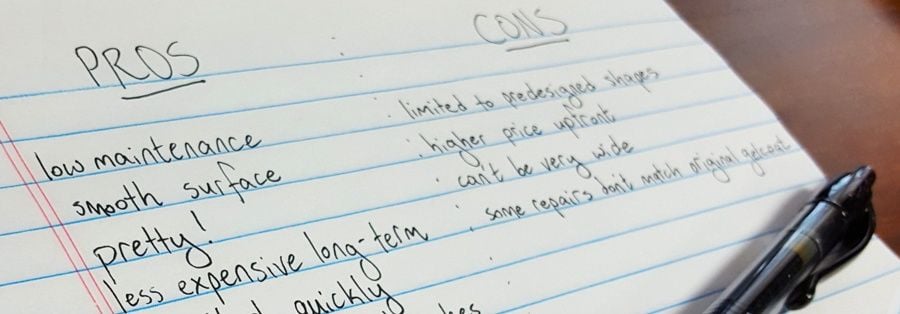 PROS
CONS
low maintenance
smooth surface
pretty!
less expensive long-term
quickly
limited to predesigned shapes
higher price upfront
can't be very wide
some repairs don't match original gelcoat